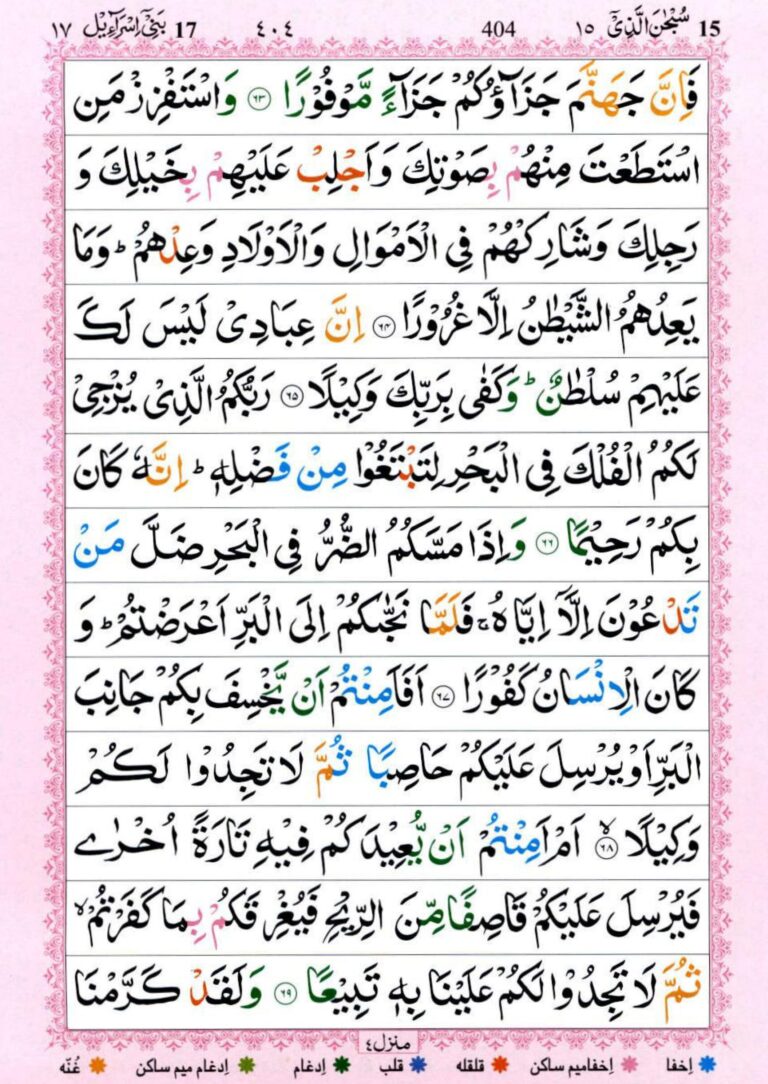 15 سُبْحٰنَ الَّذِيْٓ ١٥ 404 ٤٠٤ 17 بَنِيْٓ اِسْرَآءِيْل ١٧
فَاِنَّ جَهَنَّمَ جَزَآؤُكُمْ جَزَآءً مَّوْفُوْرًا ۝٦٣ وَاسْتَفْزِزْ مَنِ
اسْتَطَعْتَ مِنْهُمْ بِصَوْتِكَ وَاَجْلِبْ عَلَيْهِمْ بِخَيْلِكَ وَ
رَجِلِكَ وَشَارِكْهُمْ فِي الْاَمْوَالِ وَالْاَوْلَادِ وَعِدْهُمْ ؕ وَمَا
يَعِدُهُمُ الشَّيْطٰنُ اِلَّا غُرُوْرًا ۝٦٤ اِنَّ عِبَادِيْ لَيْسَ لَكَ
عَلَيْهِمْ سُلْطٰنٌ ؕ وَكَفٰى بِرَبِّكَ وَكِيْلًا ۝٦٥ رَبُّكُمُ الَّذِيْ يُزْجِيْ
لَكُمُ الْفُلْكَ فِي الْبَحْرِ لِتَبْتَغُوْا مِنْ فَضْلِهٖ ؕ اِنَّهٗ كَانَ
بِكُمْ رَحِيْمًا ۝٦٦ وَاِذَا مَسَّكُمُ الضُّرُّ فِي الْبَحْرِ ضَلَّ مَنْ
تَدْعُوْنَ اِلَّآ اِيَّاهُ ۚ فَلَمَّا نَجّٰىكُمْ اِلَى الْبَرِّ اَعْرَضْتُمْ ؕ وَ
كَانَ الْاِنْسَانُ كَفُوْرًا ۝٦٧ اَفَاَمِنْتُمْ اَنْ يَّخْسِفَ بِكُمْ جَانِبَ
الْبَرِّ اَوْ يُرْسِلَ عَلَيْكُمْ حَاصِبًا ثُمَّ لَا تَجِدُوْا لَكُمْ
وَكِيْلًا ۝٦٨ۙ اَمْ اَمِنْتُمْ اَنْ يُّعِيْدَكُمْ فِيْهِ تَارَةً اُخْرٰى
فَيُرْسِلَ عَلَيْكُمْ قَاصِفًا مِّنَ الرِّيْحِ فَيُغْرِقَكُمْ بِمَا كَفَرْتُمْ ۙ
ثُمَّ لَا تَجِدُوْا لَكُمْ عَلَيْنَا بِهٖ تَبِيْعًا ۝٦٩ وَلَقَدْ كَرَّمْنَا
منزل٤
اِخفا اِخفامیم ساکن قلقله قلب اِدغام اِدغام میم ساکن غُنّه